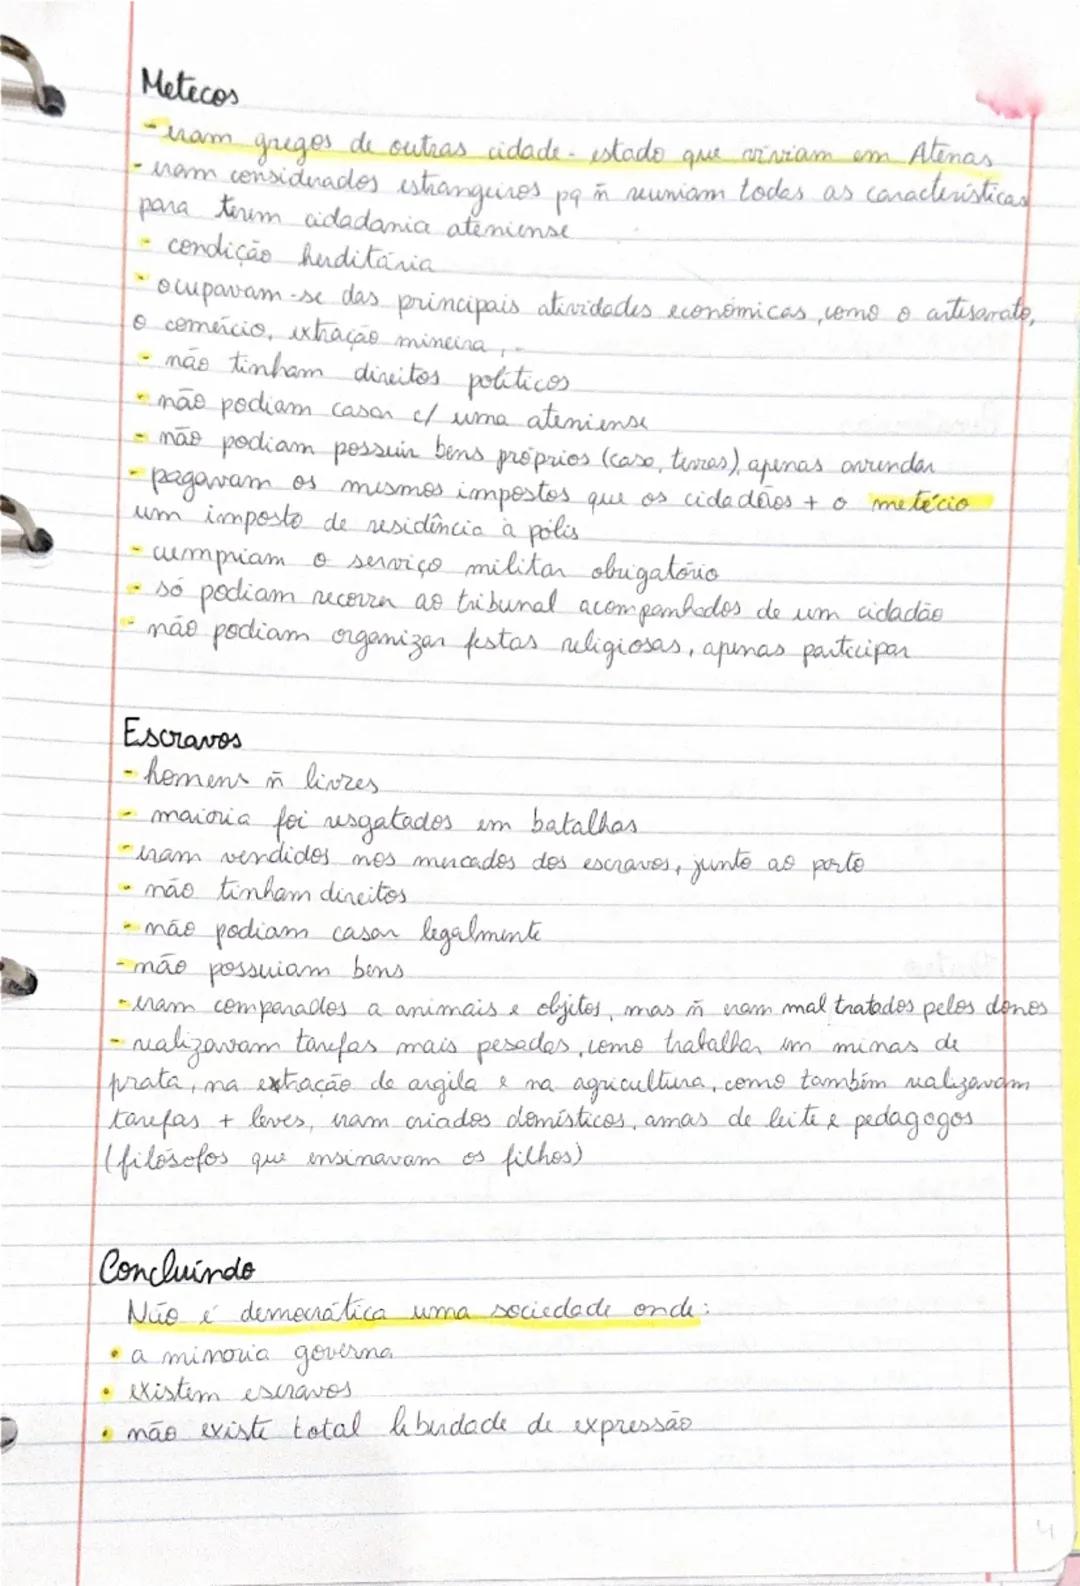 Metecos
- eram gregos de outras cidade-estado que viviam em Atenas
- eram considerados estrangeiros pq ñ reuniam todas as características
para terem cidadania ateniense
- condição herditária
- ocupavam-se das principais atividades económicas, como o artesanato,
o comércio, extração mineira, ..
- não tinham direitos políticos
- não podiam casar c/ uma ateniense
- não podiam possuir bens próprios (casa, terras), apenas arrendar
- pagavam os mesmos impostos que os cidadãos + o metécio
um imposto de residência à pólis
- cumpriam o serviço militar obrigatório
- só podiam recorrer ao tribunal acompanhados de um cidadão
- não podiam organizar festas religiosas, apenas participar
Escravos
- homens ñ livres
- maioria foi resgatados em batalhas
- eram vendidos nos mercados dos escravos, junto ao porto
- não tinham direitos
- não podiam casar legalmente
- não possuiam bens
- eram comparados a animais e objetos, mas ñ eram mal tratados pelos donos
- realizavam tarefas mais pesadas, como trabalhar em minas de
prata, na extração de argila e na agricultura, como também realizavam
tarefas + leves, eram criados domésticos, amas de leite e pedagogos
(filósofos que ensinavam os filhos)
Concluindo
Não é democrática uma sociedade onde:
• a minoria governa
• existem escravos
• não existe total liberdade de expressão
4